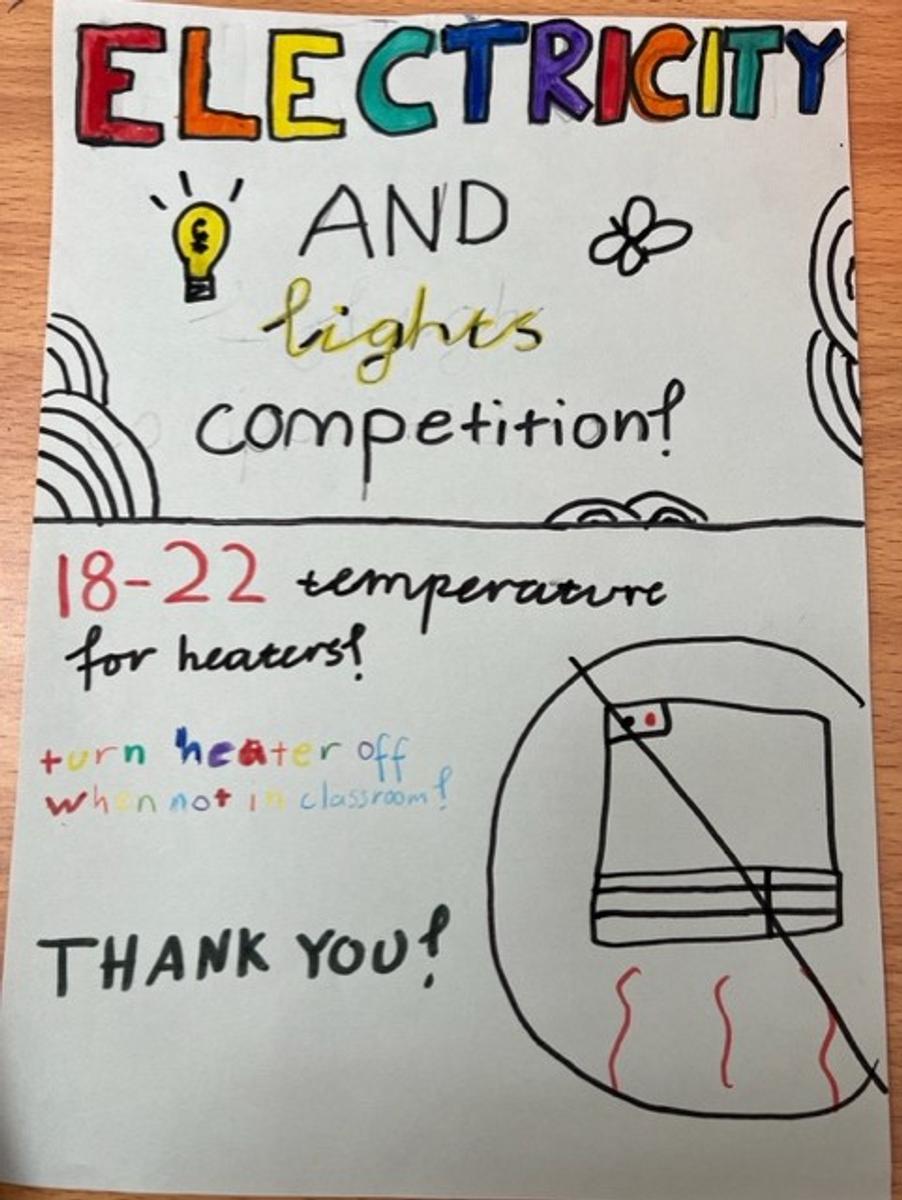 ELECTRICITY
AND
lights
competition!
18-22 temperature
for heaters!
turn heater off
when not in classroom!
THANK YOU!